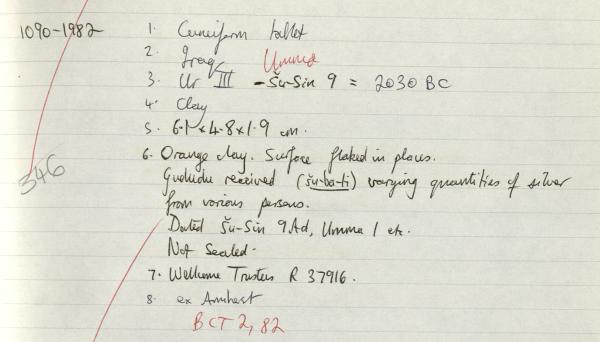 1090-1982 1. Cuneiform tablet
2. Iraq Umma
3. Ur III - Šu-Sin 9 = 2030 BC
4. Clay
5. 6.1 x 4.8 x 1.9 cm.
346
6. Orange clay. Surface flaked in places.
Gududu received (šu-ba-ti) varying quantities of silver
from various persons.
Dated Šu-Sin 9 Ad, Umma 1 etc.
Not Sealed.
7. Wellcome Trustees R 37916.
8. ex Amherst
BCT 2, 82